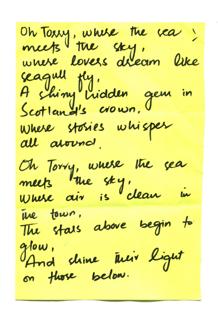 Oh Torry, where the sea
meets the sky,
where lovers dream like
seagull fly,
A shiny hidden gem in
Scotland's crown,
Where stories whisper
all around.
Oh Torry, where the sea
meets the sky,
Where air is clean in
the town,
The stars above begin to
glow,
And shine their light
on those below.